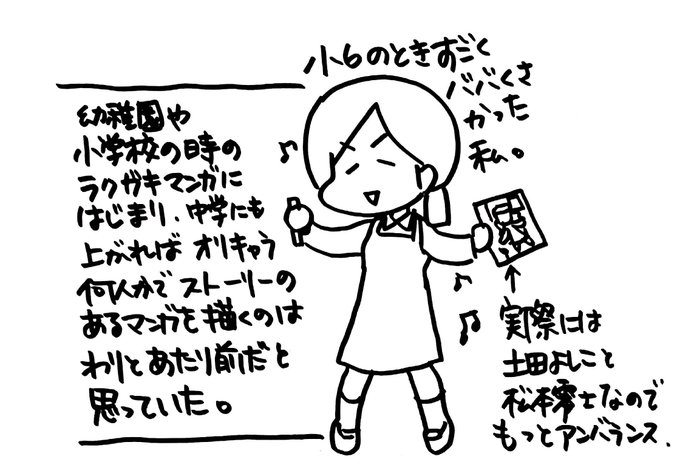 小6のときすごく
ババくさ
かった
私。
幼稚園や
小学校の時の
ラクガキマンガに
はじまり、中学にも
上がれば オリキャラ
何人かで ストーリーの
あるマンガを描くのは
わりとあたり前だと
思っていた。
実際には
土田よしこと
松本零士なので
もっとアンバランス.